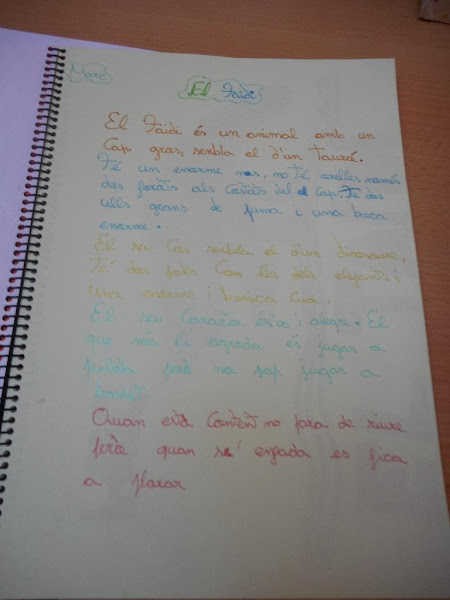 Marc
El Faidi
El Faidi és un animal amb un
cap gros, sembla el d'un Taurà.
Té un enorme nas, no té orelles només
dos forats als costats del cap, Té dos
ulls grans de puma i una boca
enorme.
El seu cos sembla el d'un dinosaure,
Té dos potes com les dels elefants i
una enorme i bonica cua.
El seu caracter és i alegre. El
que més li agrada és jugar a
pilota però no sap jugar a
Quan està content no para de riure
però quan s'enfada es fica
a plorar